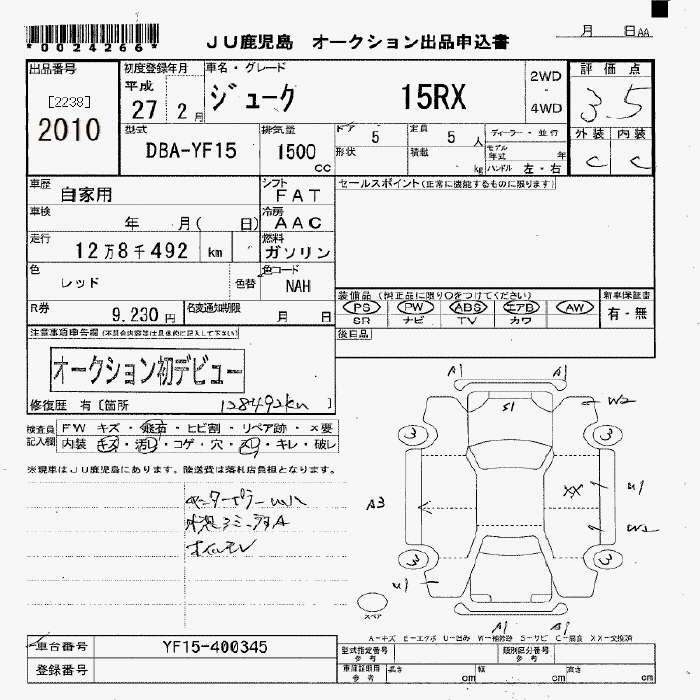 *0024266*
JU鹿児島 オークション出品申込書
月 日AA
出品番号
[2238]
2010
初度登録年月
平成
27 2月
車名・グレード
ジューク 15RX
2WD
・
4WD
評価点
3.5
外装 内装
C C
型式
DBA-YF15
排気量
1500
cc
ドア 5
定員 5 人
ディーラー・並行
形状
積載 kg
モデル年式 年
ハンドル 左・右
車歴 自家用
シフト FAT
セールスポイント(正常に機能するものに限ります)
車検 年 月( 日)
冷房 AAC
走行 12万8千492 km
燃料 ガソリン
色 レッド
色替
色コード NAH
装備品(純正品に限り○をつけてください)
新車保証書
PS PW ABS エアB AW
有・無
SR ナビ TV カワ
R券 9.230円
名変通知期限 月 日
後日品
注意事項申告欄
オークション初デビュー
修復歴 有〔箇所 128492km 〕
検査員記入欄
FW キズ・飛石・ヒビ割・リペア跡・×要
内装 キズ・汚レ・コゲ・穴・スレ・キレ・破レ
※現車はJU鹿児島にあります。陸送費は落札店負担となります。
A1 A1
S1
W2
3 3
A3
XX
U1
W2
3 3
U1
スペア
A1 A1
A-キズ E-エクボ U-凹み W-補修跡 S-サビ C-腐食 XX-交換済
車台番号 YF15-400345
登録番号
型式指定番号 参考
類別区分番号 参考
車庫証明用 参考
長さ cm
幅 cm
高さ cm